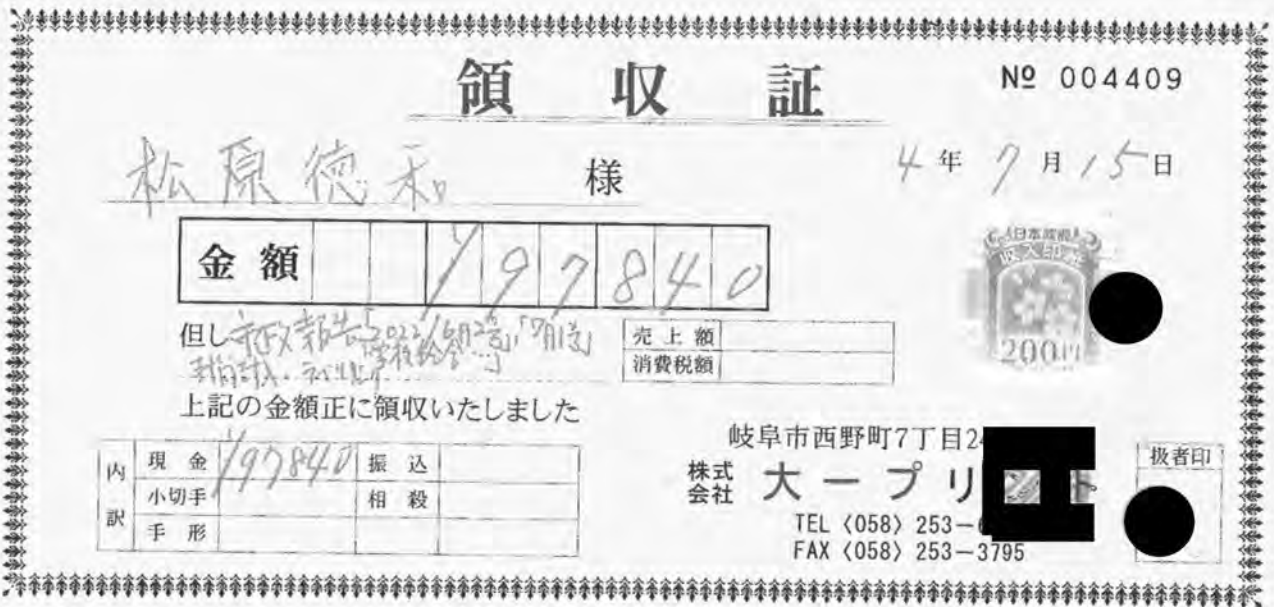 領収証
№ 004409
松原徳和 様
4年7月15日
金額 197840
日本政府
収入印紙
200円
但し 市政報告「2022/6月2号」,「7月1号」
「学校給食…」
売上額
消費税額
上記の金額正に領収いたしました
内訳
現金 197840 振込
小切手 相殺
手形
岐阜市西野町7丁目2
株式会社 大一プリ ト
TEL〈058〉253-
FAX〈058〉253-3795
扱者印